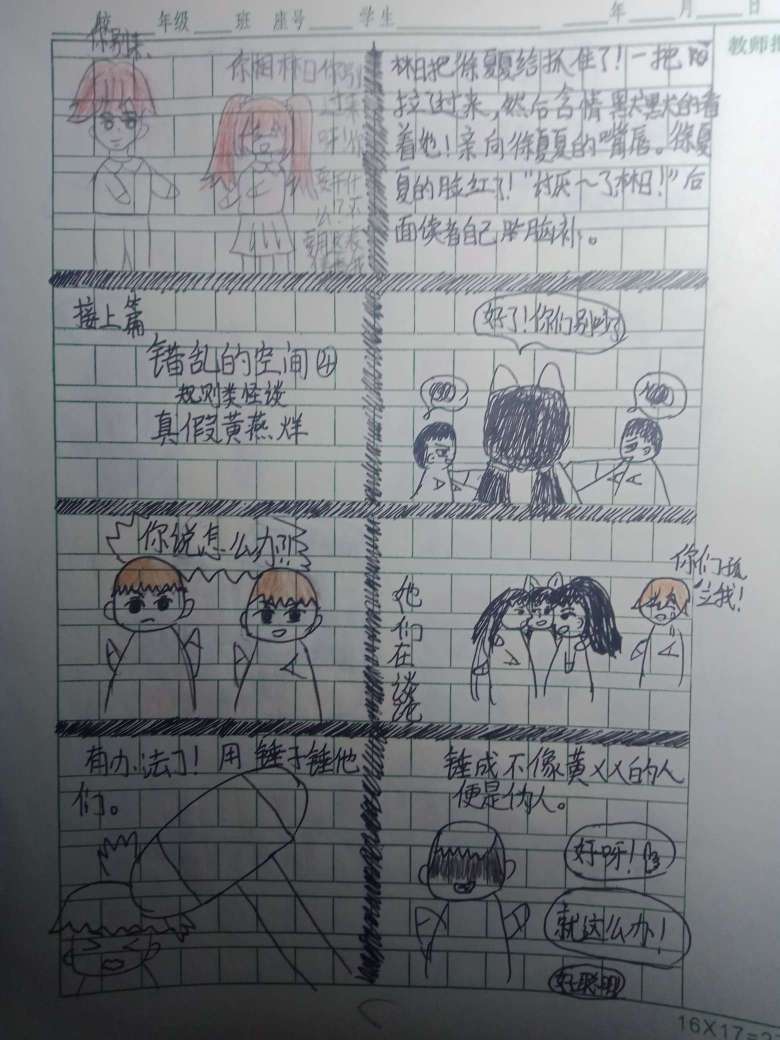 年级 班 座号 学生 年 月 日
教师批
你别来
林日把徐夏夏给抓住了！一把
拉了过来，然后含情默默的看
着她！亲向徐夏夏的嘴唇。徐夏
夏的脸红了！"讨厌～了林日！"后
面读者自己脑补。
接上篇
错乱的空间④
规则类怪谈
真假黄燕烊
好了！你们别吵了
你说怎么办？！
她们在谈论
你们孤
立我！
有办法了！用锤子锤他
们。
锤成不像黄XX的人
便是伪人。
好呀！
就这么办！
好聪明
16×17=2